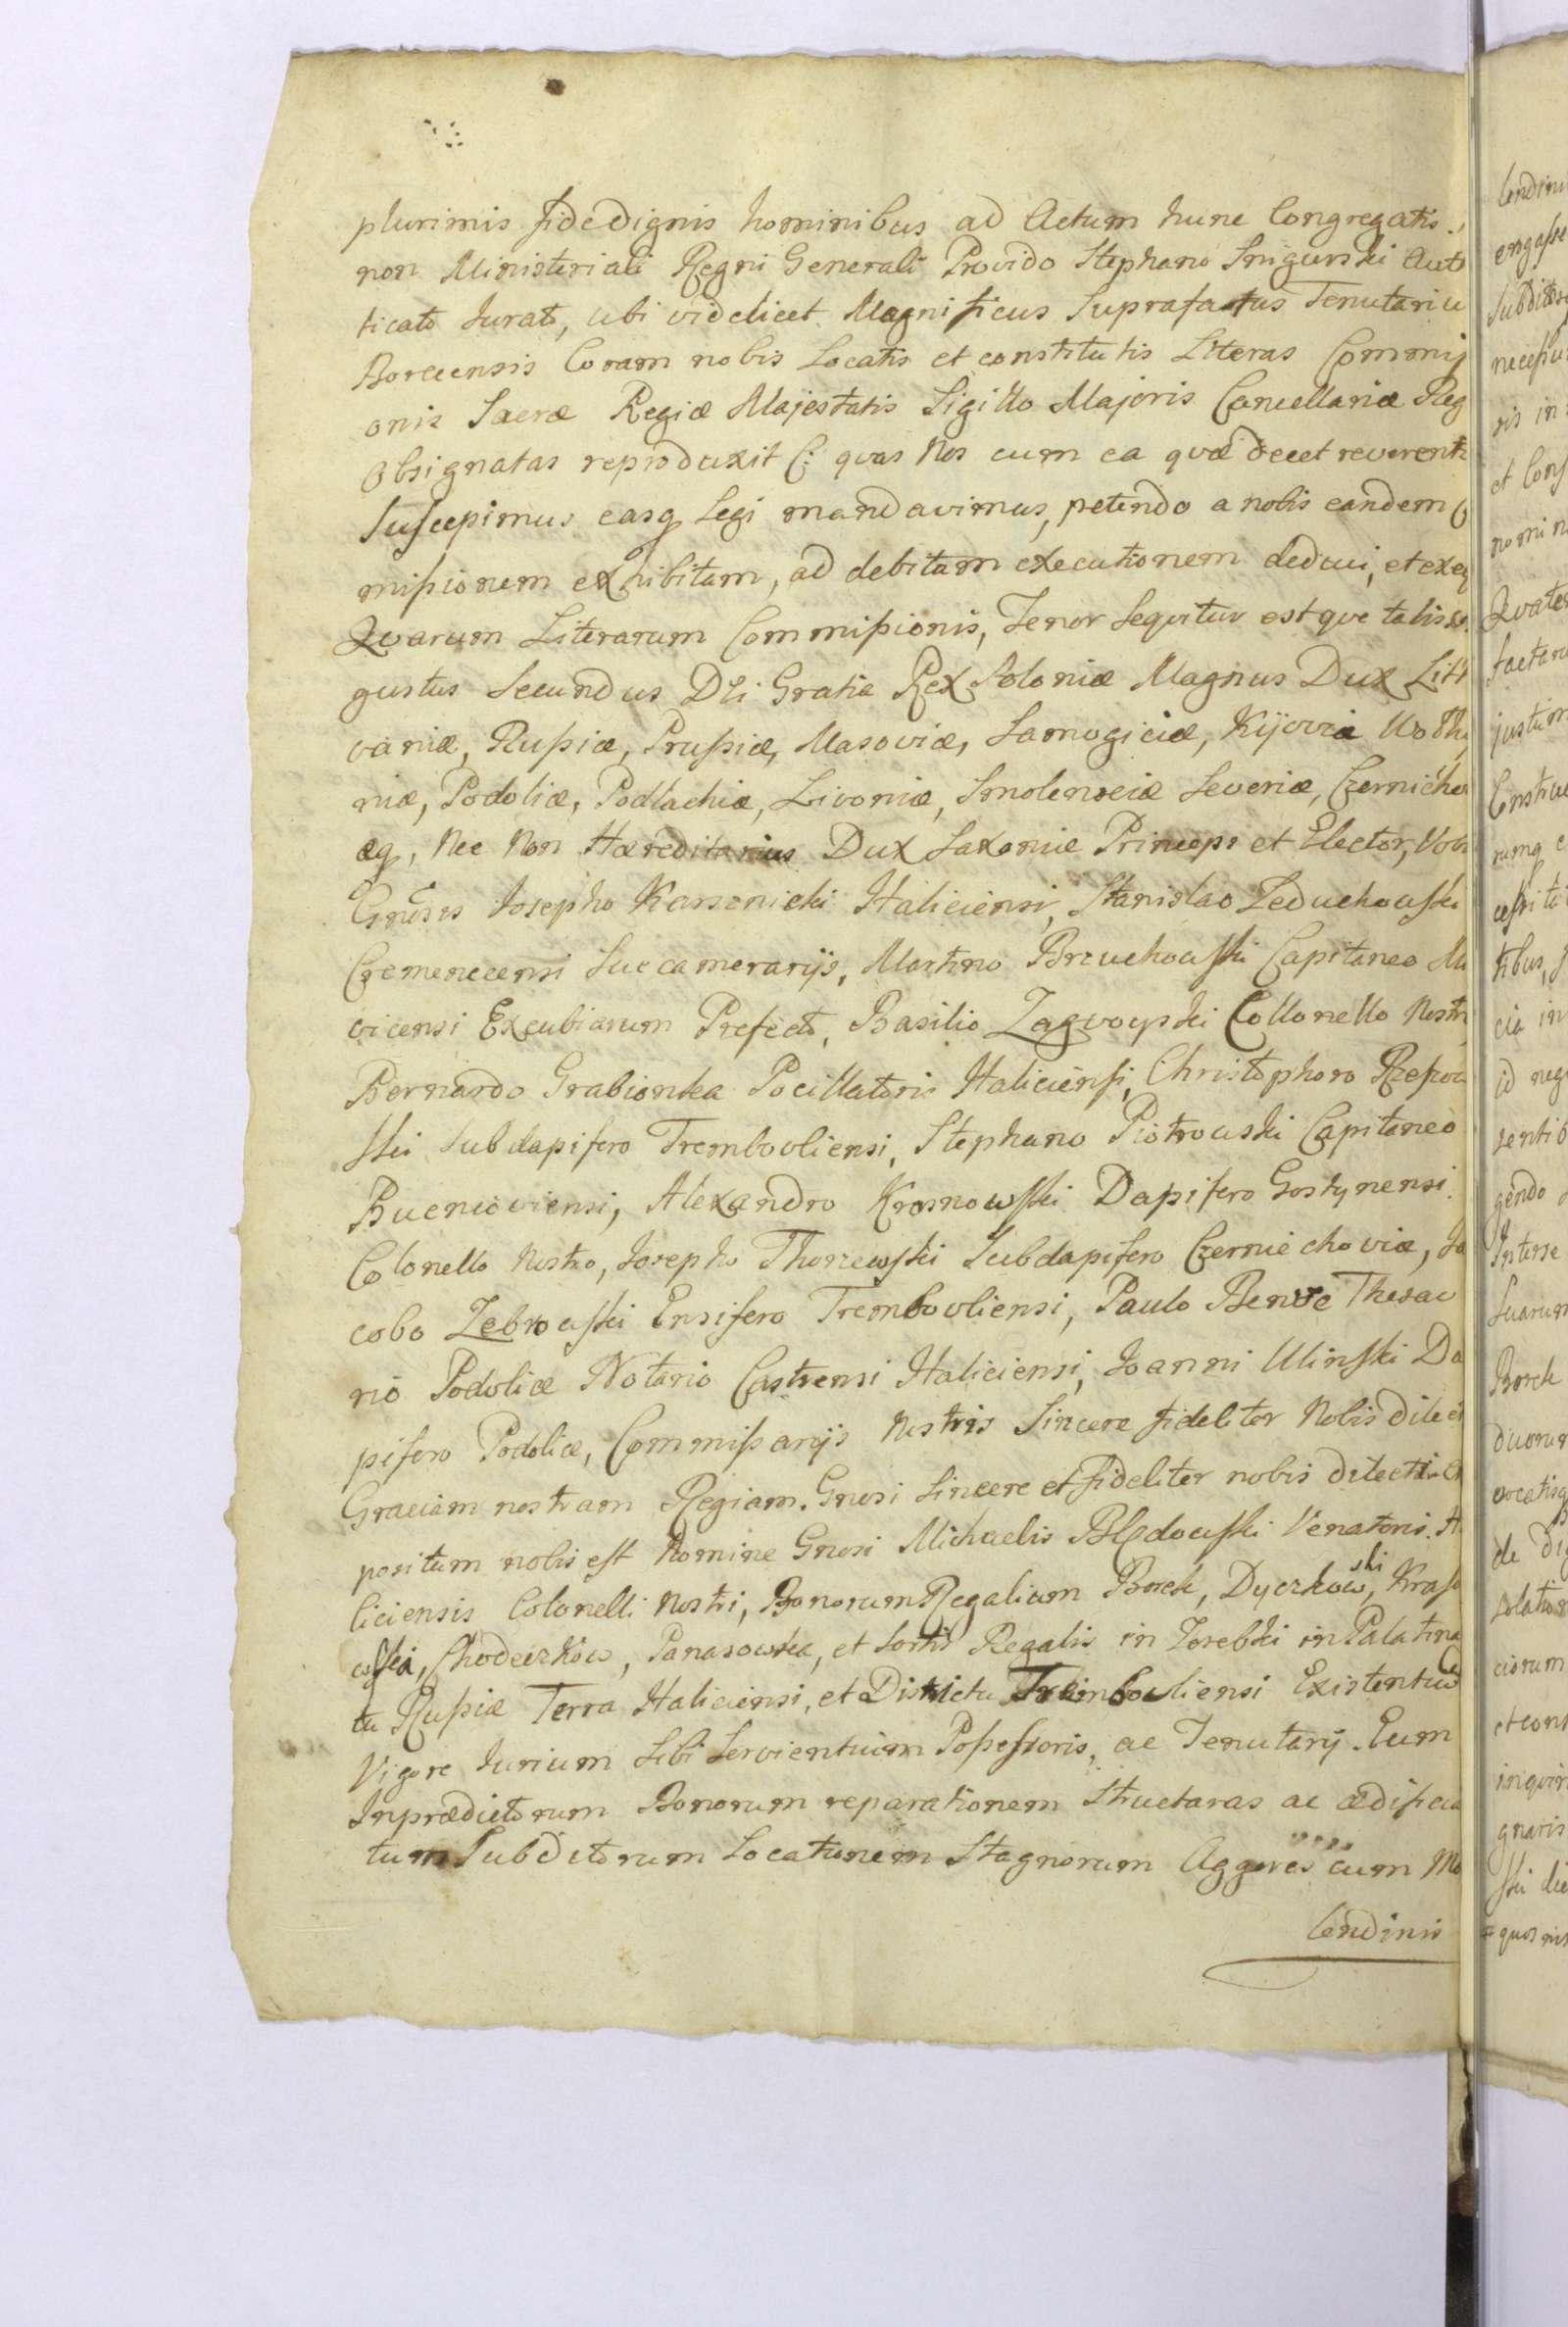 plurimis fide dignis hominibus ad Actum hunc Congregatis.,
non Ministeriali Regni Generali Provido Stephano Snigurski Aut
ticato Jurato, ubi videlicet Magnificus Suprafatus Tenutariu
Borcensis Coram nobis Locatis et constitutis Literas Commiſ
onis Sacræ Regiæ Majestatis Sigillo Majoris Cancellariæ Reg
Obsignatas reproduxit C: quas Nos cum ea quæ decet reverenti
Suſcepimus easq Legi mandavimus, petendo a nobis eandem
miſsionem exhibitam, ad debitam executionem deduci, et exeq
Quarum Literarum Commiſsionis, Tenor Sequitur estque talis
gustus Secundus DEi Gratia Rex Poloniæ Magnus Dux Litt
vaniæ, Ruſsiæ, Pruſsiæ, Masoviæ, Samogiciæ, Kijoviæ Wolhy
niæ, Podoliæ, Podlachiæ, Livoniæ, Smolensciæ Severiæ, Czerniche
æq, Nec Non Hæreditarius Dux Saxoniæ Princeps et Elector, Vob
Gnosis Josepho Karsznicki Haliciensi, Stanislao Leduchowſki
Cremenecensi Succamerarijs, Martino Brzuchowſki Capitaneo
vicensi Excubiarum Prefecto, Basilio Zagwoyski Collonello Nostr
Bernardo Grabionka Pocillatoris Haliciensi, Christophoro
ſki Subdapifero Trembovliensi, Stephano Piotrowski Capitaneo
Bucnioviensi, Alexandro Krosnowſki Dapifero Gostynensi
Colonello Nostro, Josepho Thorzewſki Subdapifero Czerniechoviæ, Ja
cobo Zebrowſki Ensifero Trembovliensi, Paulo Benoe Thesau
rio Podoliæ Notario Castrensi Haliciensi, Joanni Ulinſki Da
pifero Podoliæ, Commiſsarijs Nostris Sincere fideliter Nobis dilect
Graciam nostram Regiam. Gnosi Sincere et fideliter nobis dilecti
positum nobis eſt Nomine Gnosi Michaelis Błędowſki Venatoris. H
liciensis Colonelli Nostri, Bonorum Regalium Borek, Dyczkowski, Kraſo
wſka, Chodeczkow, Panasowka, et Sortis Regalis in Josebki in Palatina
tu Ruſsiæ Terra Haliciensi, et Districtu Trembowliensi Existentiu
Vigore Jurium Sibi Servientium Poſseſsoris, ac Tenutarij. Eum
In prædictorum Bonorum reparationem Structuras ac ædificia
tum Subditorum Locationem Stagnorum Aggeres cum Mo
lendinis
lendini
engaſse
Subditos
neceſsa
ris in
et Conſ
nomin
Quater
factaru
justum
Constru
rumq e
ceſsita
tibus,
cia in
id neg
sentib
gendo
Interse
Suarum
Borek
duorum
vocatisq
de Dig
solation
ciorum
et cons
inquir
gnaris
ſki die
quos nis